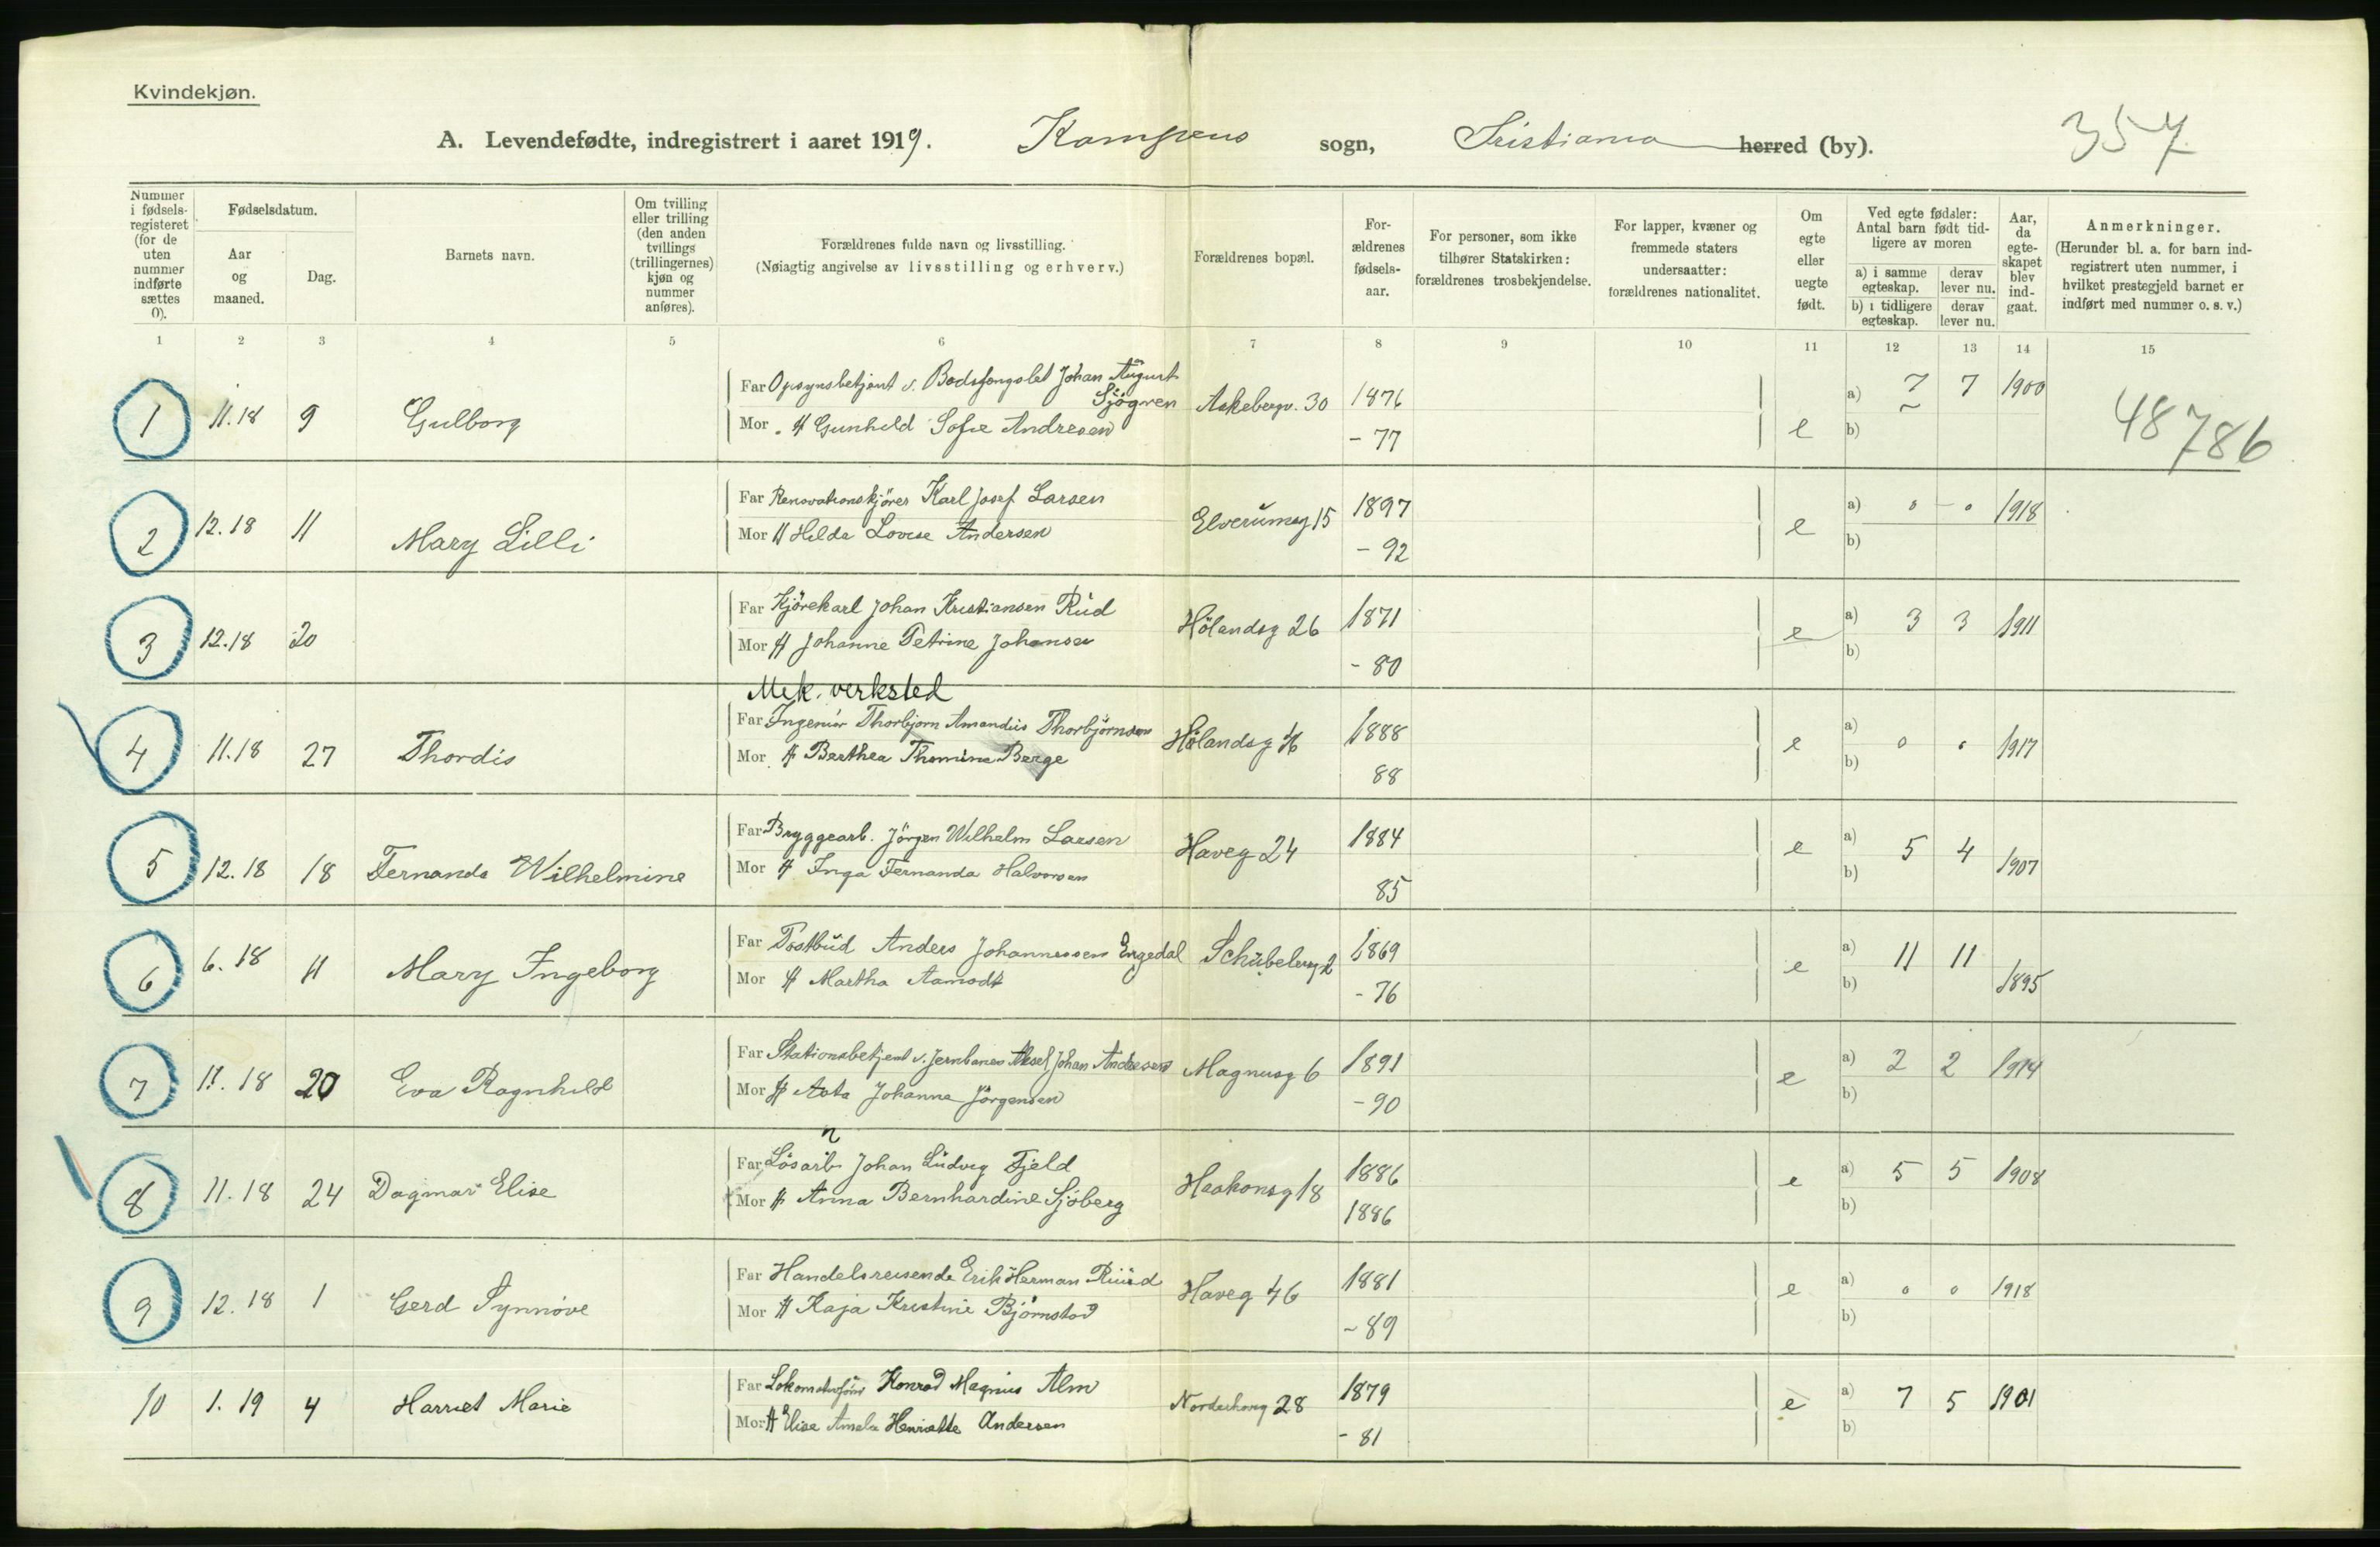 Kvindekjøn.
A. Levendefødte, indregistrert i aaret 1919. Kampens sogn, Kristiania herred (by). 357
Nummer i fødsels-registeret (for de uten nummer indførte sættes 0).
Fødselsdatum.
Aar og maaned.
Dag.
Barnets navn.
Om tvilling eller trilling (den anden tvillings (trillingernes) kjøn og nummer anføres).
Forældrenes fulde navn og livsstilling.
(Nøiagtig angivelse av livsstilling og erhverv.)
Forældrenes bopæl.
For-ældrenes fødsels-aar.
For personer, som ikke tilhører Statskirken: forældrenes trosbekjendelse.
For lapper, kvæner og fremmede staters undersaatter: forældrenes nationalitet.
Om egte eller uegte født.
Ved egte fødsler: Antal barn født tid-ligere av moren
a) i samme egteskap.
derav lever nu.
b) i tidligere egteskap.
derav lever nu.
Aar, da egte-skapet blev ind-gaat.
Anmerkninger.
(Herunder bl. a. for barn ind-registrert uten nummer, i hvilket prestegjeld barnet er indført med nummer o. s. v.)
1 2 3 4 5 6 7 8 9 10 11 12 13 14 15
1 11.18 9 Gulborg Far Opsynsbetjent v. Bodsfængslet Johan August Sjögren Aakebergv. 30 1876 e a) 7 7 1900
Mor H Gunhild Sofie Andresen - 77 b)
48786
2 12.18 11 Mary Lilli Far Renovationskjører Karl Josef Larsen Elverumsg 15 1897 e a) 0 - 0 1918
Mor H Hilda Lovise Andersen - 92 b)
3 12.18 20 Far Kjørekarl Johan Kristiansen Rud Hölandsg 26 1871 e a) 3 3 1911
Mor H Johanne Petrine Johansen - 80 b)
Mek. verksted
4 11.18 27 Thordis Far Ingeniør Thorbjørn Amandus Thorbjørnsen Hölandsg 1888 e a) 0 0 1917
Mor H Berthea Thomine Berge 88 b)
5 12.18 18 Fernanda Wilhelmine Far Bryggearb. Jörgen Wilhelm Larsen Haveg 24 1884 e a) 5 4 1907
Mor H Inga Fernanda Halvorsen 85 b)
6 6.18 11 Mary Ingeborg Far Postbud Anders Johannessen Engedal Schübelersg 2 1869 e a) 11 11 1895
Mor H Martha Aamodt - 76 b)
7 11.18 20 Eva Ragnhild Far Stationsbetjent v. Jernbanen Aksel Johan Andresen Magnusg 6 1891 e a) 2 2 1914
Mor H Asta Johanne Jörgensen - 90 b)
8 11.18 24 Dagmar Elise Far Lösarb Johan Ludvig Fjeld Haakonsg 18 1886 e a) 5 5 1908
Mor H Anna Bernhardine Sjöberg 1886 b)
9 12.18 1 Gerd Synnöve Far Handelsreisende Erik Herman Ruud Haveg 46 1881 e a) 0 0 1918
Mor H Kaja Kristine Björnstad - 89 b)
10 1.19 4 Harriet Marie Far Konrad Magnus Alm Norderhovg 28 1879 e a) 7 5 1901
Mor H Elise Amalie Henriette Andersen - 81 b)